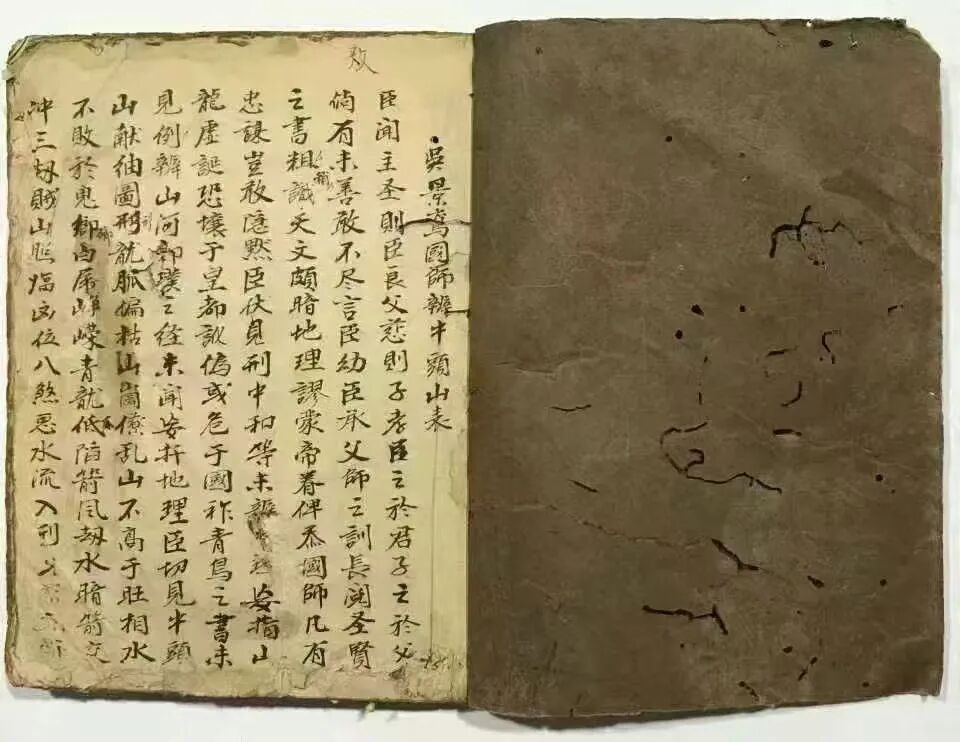 吳景鸞國師辨牛頭山表
臣聞主圣則臣良父慈則子孝臣之於君子之於父
倘有未善敢不尽言臣幼臣承父師之訓長閱圣賢
之書粗識天文頗暗地理謬蒙帝眷俾忝國師凡有
忠誠豈敢隐默臣伏見刑中和等未辨妄指山
龍虛誕恐壞于皇都訛偽或危于國祚青烏之書未
見例辨山河郭璞之経未闻妄扦地理臣切見牛頭
山献紬圖形龍脈偏枯山崗僚乱山不高于旺相水
不敗於鬼鄉白虎崢嶸青龍低陷箭风刼水暗箭交
冲三刼賊山凶位八煞恶水流入刑